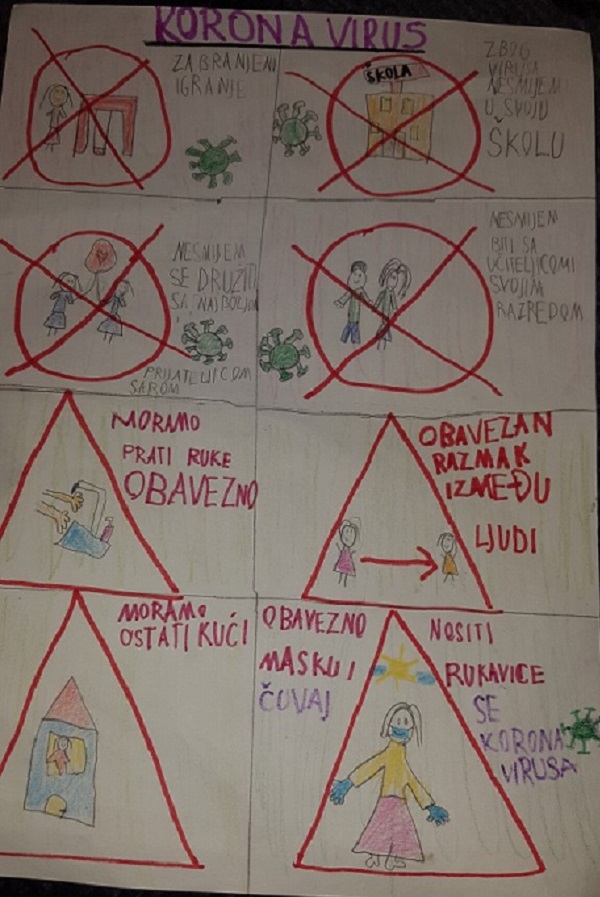 KORONA VIRUS
ZABRANJENO
IGRANJE
ŠKOLA
ZBOG
VIRUSA
NESMIJEM
U SVOJU
ŠKOLU
NESMIJEM
SE DRUŽITI
SA NAJBOLJOM
PRIJATELJICOM
SAROM
NESMIJEM
BITI SA
UČITELJICOM I
SVOJIM
RAZREDOM
MORAMO
PRATI RUKE
OBAVEZNO
OBAVEZAN
RAZMAK
IZMEĐU
LJUDI
MORAMO
OSTATI KUĆI
OBAVEZNO NOSITI
MASKU I RUKAVICE
ČUVAJ SE
KORONA
VIRUSA